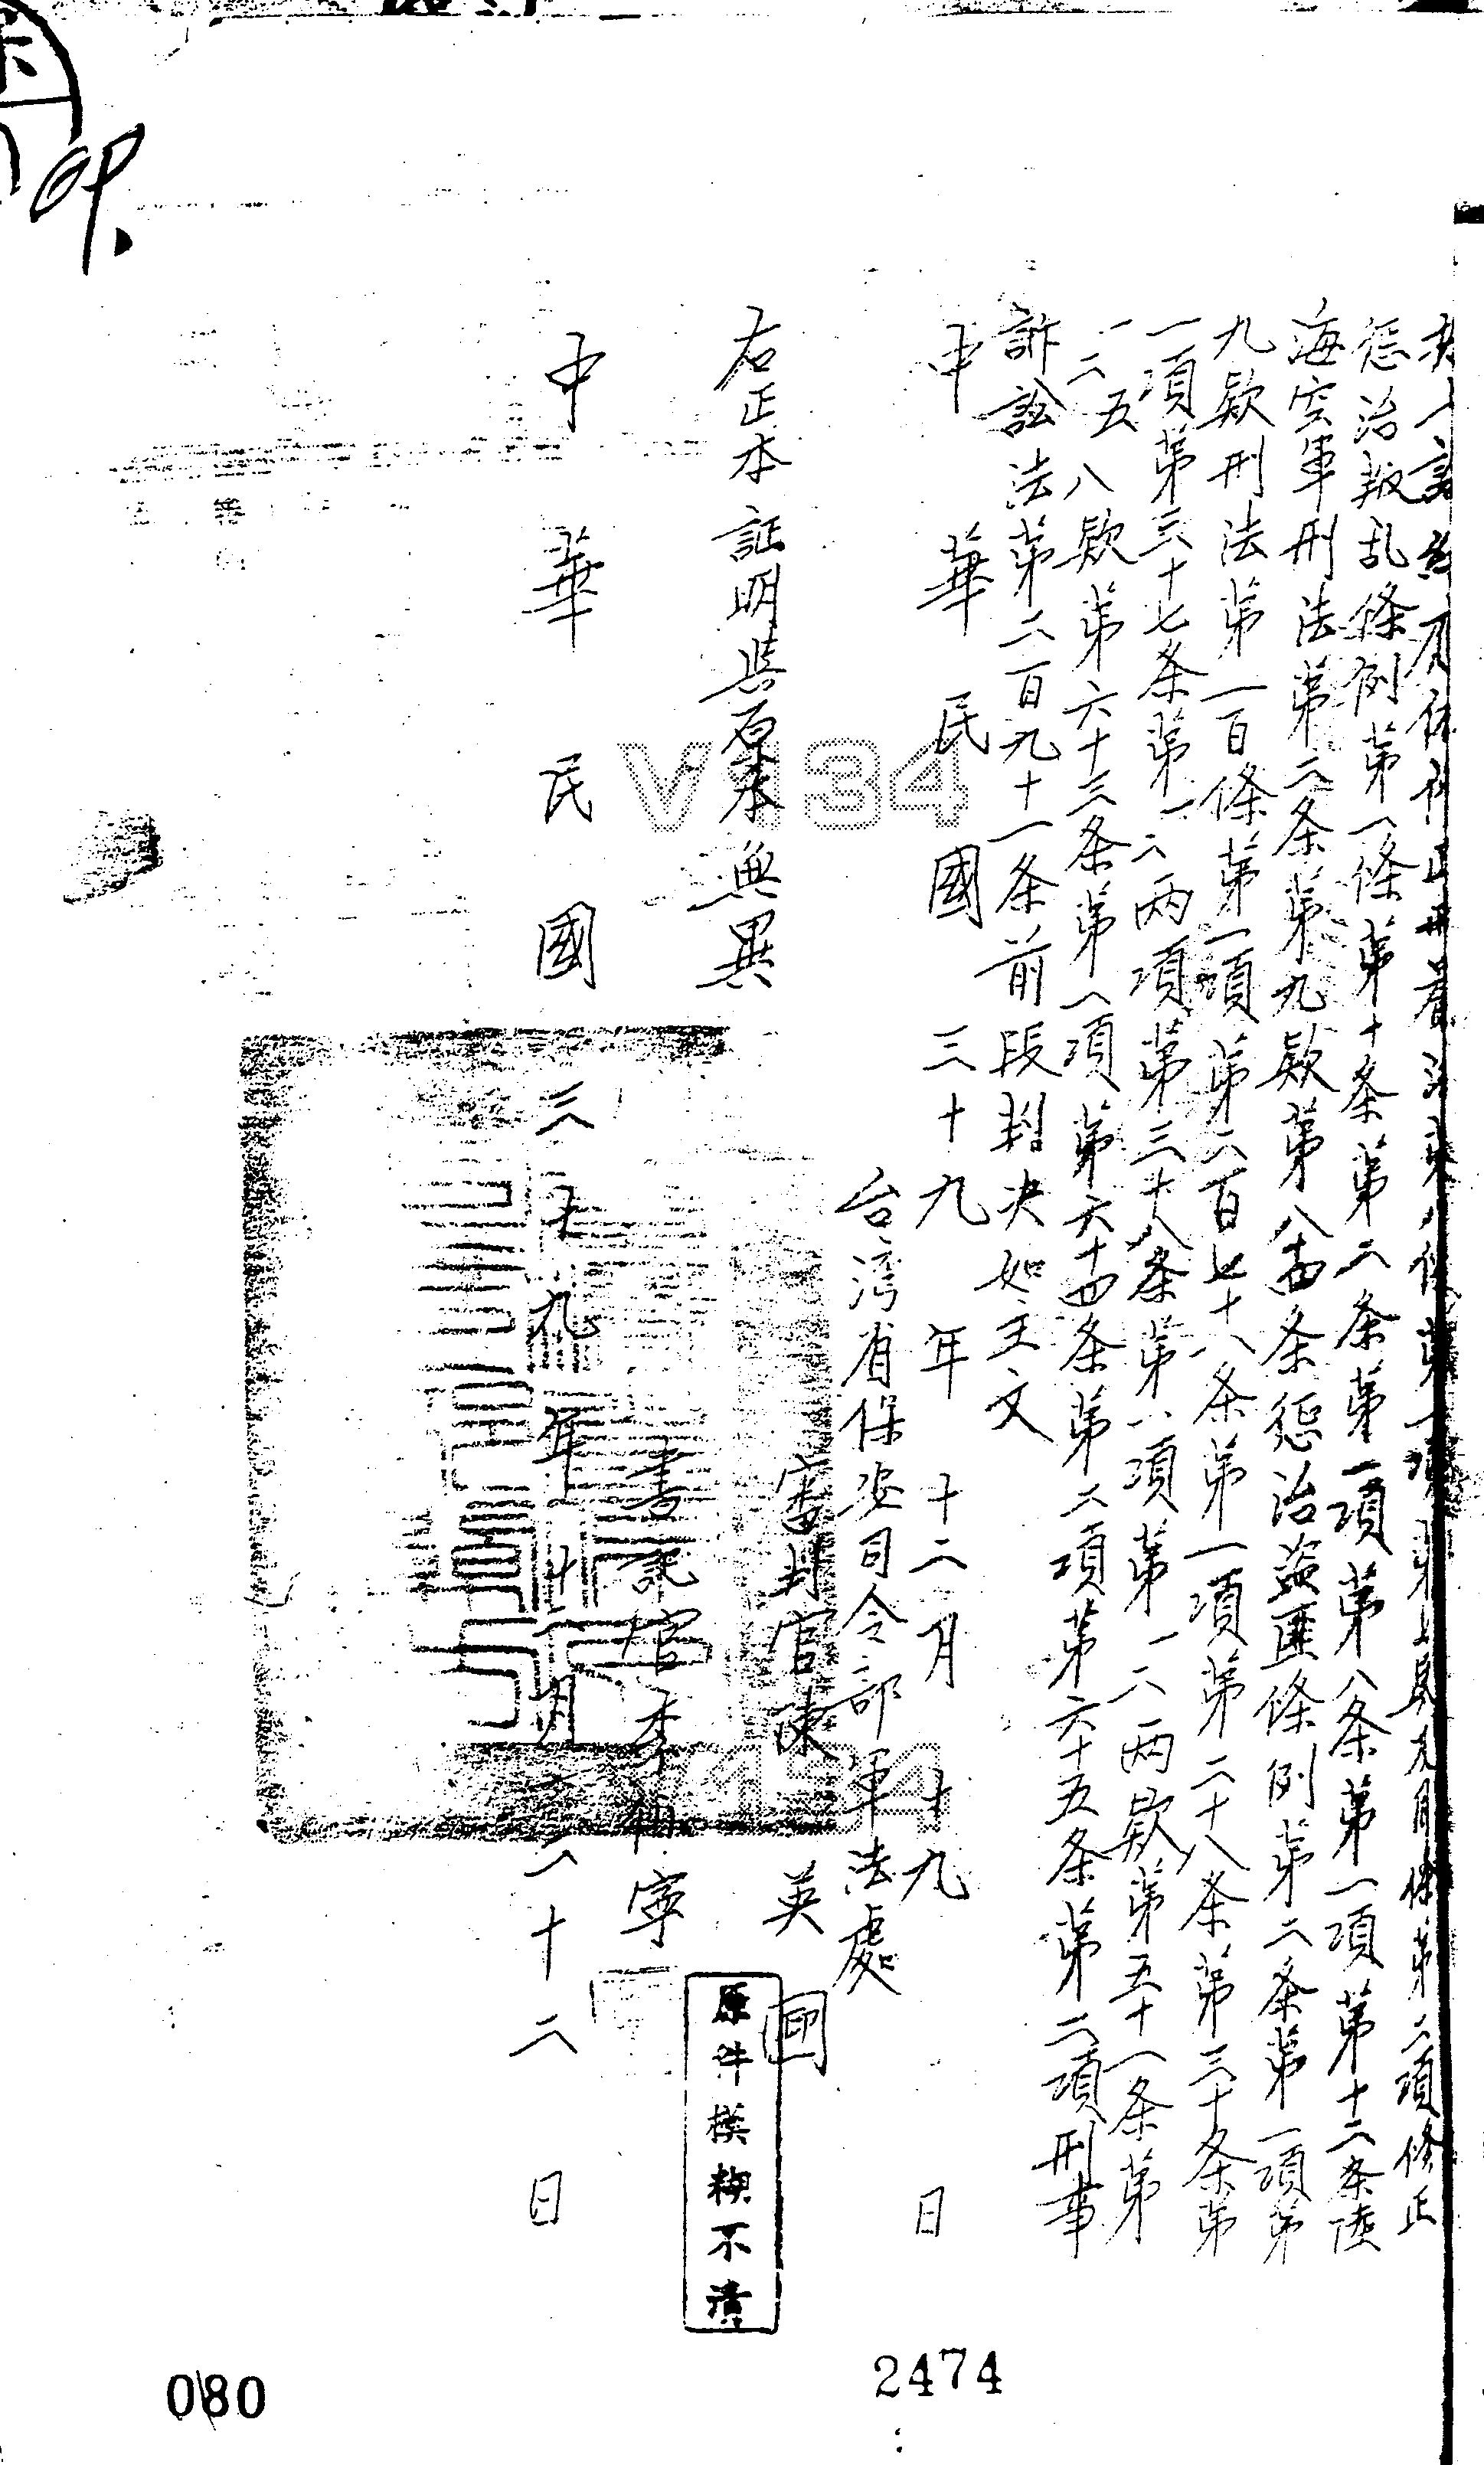 懲治叛乱條例第一條第十条第二条第一項第八条第一項第十二条陸
海空軍刑法第二条第九款第八十四条懲治盜匪條例第二条第一項第
九款刑法第一百條第一項第二百七十八条第一項第二十八条第三十条第
一項第三十七条第一二两項第三十八条第一項第一二两款第五十一条第
一二五八款第六十三条第一項第六十四条第二項第六十五条第二項刑事
訴訟法第二百九十一条前段判决如主文
中華民國三十九年十二月十九日
台湾省保安司令部軍法處
審判官陳英
右正本証明與原本無異
書記官李寧
中華民國三十九年十二月二十二日
原件模糊不清
V134
V134
2474
080